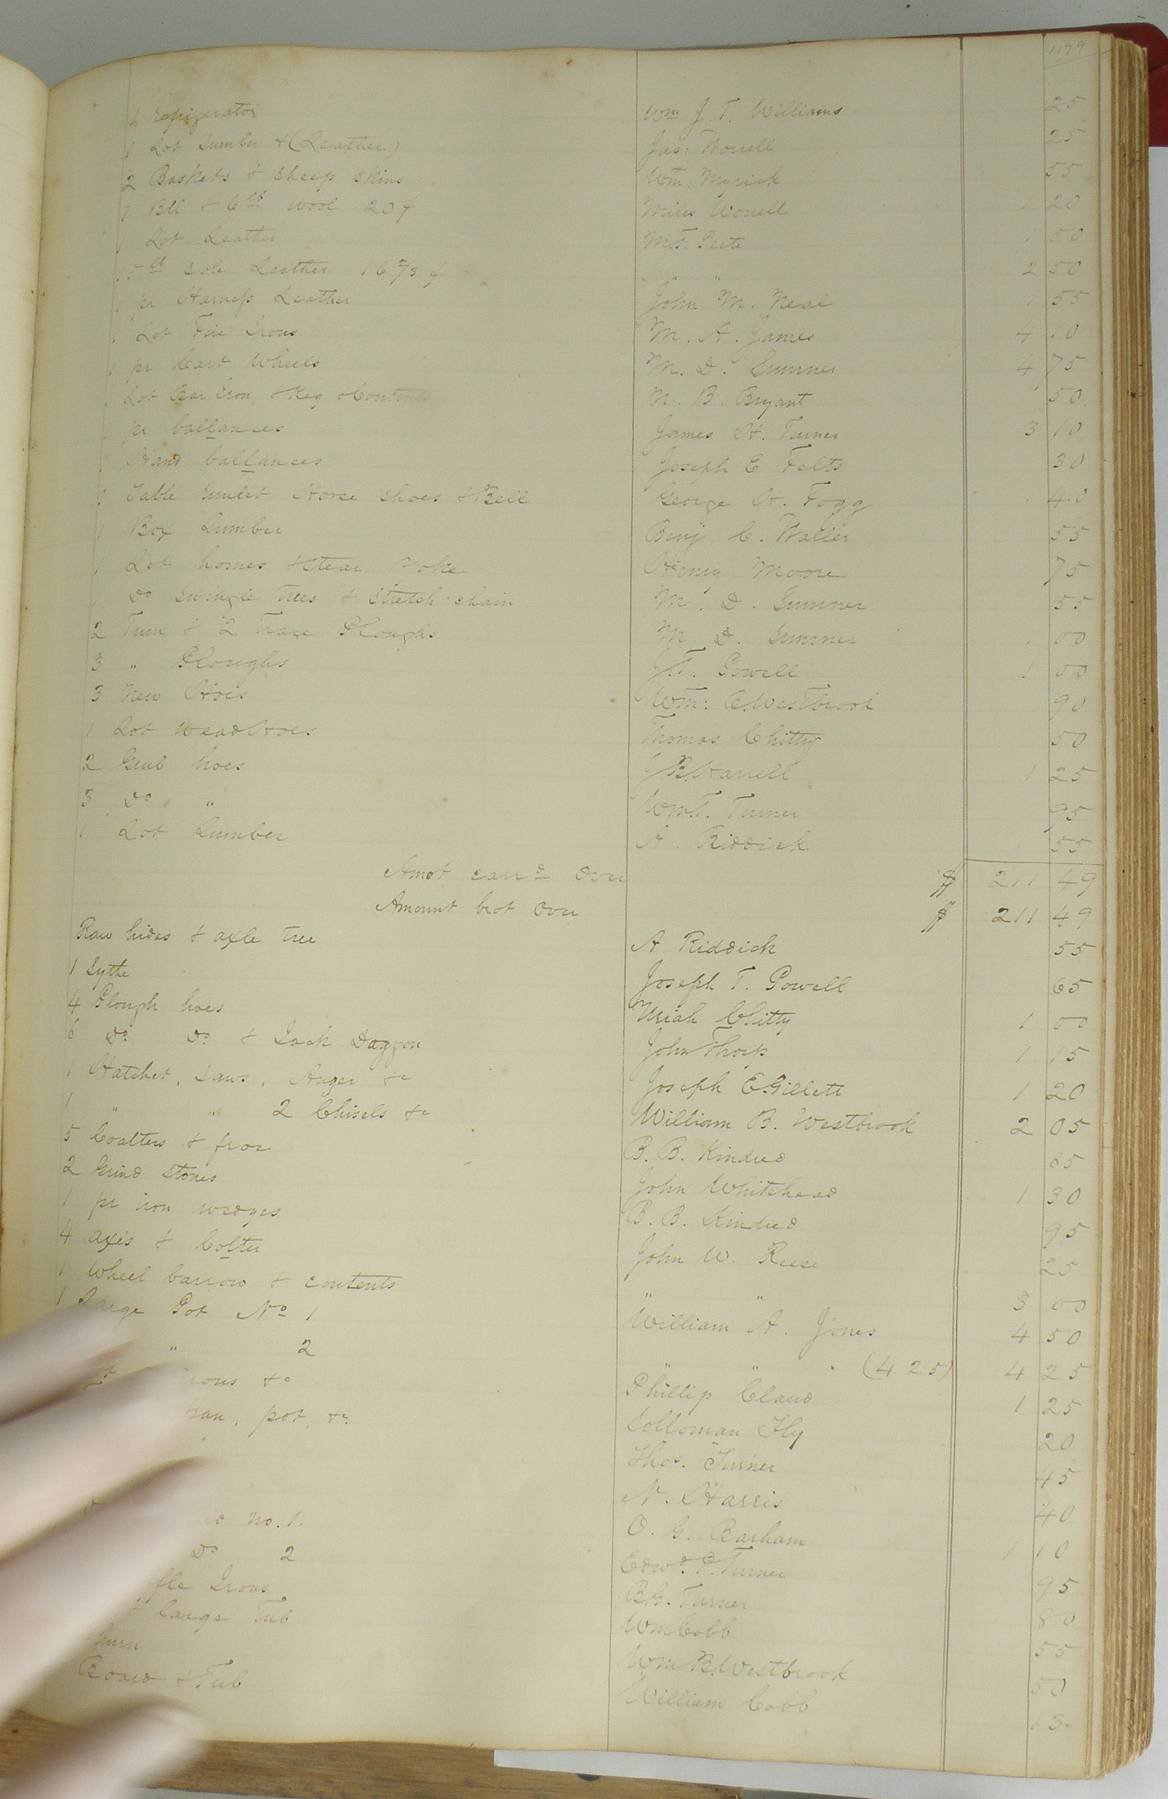 479
1 refrigerator Wm J. T. Williams 25
1 Lot Lumber & (Leather) Jas: Worrell 25
2 Baskets & Sheep Skins Wm. Myrick 55
1 Bll & 6 lb wool 20 f Miles Worrell 1 20
1 Lot Leather 1 50
5 lb Sole Leather 16 2/3 f " " 2 50
1 pr Harness Leather John M. Neal 1 55
1 Lot Fire Irons M. A. James 4 10
1 pr Cart Wheels M. D. Sumner 4 75
1 Lot Bar Iron & Keg & Contents N. B. Bryant 50
1 pr ballances James H. Turner 3 10
1 Hand ballances Joseph E Felts 30
1 Table Horse shoes & Bell George H. Fogg 40
1 Box Lumber Benj C. Waller 55
1 Lot homes & Stear Yoke Henry Moore 75
1 Do swingle trees & Stretch chain M. D. Sumner 55
2 Turn & 2 Trace Ploughs M D. Sumner 1 00
3 " Ploughs J. T. Powell 1 00
3 New Hoes Wm: E. Westbrook 90
1 Lot Weed Hoes Thomas Chitty 50
2 Grub hoes J B. Harrell 1 25
3 Do " Turner 95
1 Lot Lumber A. Riddick 55
Amot carrd Over $ 211 49
Amount brot Over $ 211 49
Raw hides & axle tree A Riddick 55
1 Sythe Joseph T. Powell 65
4 Plough hoes Uriah Chitty 1 00
6 Do Do & Jack Daggon John Thorp 1 15
1 Hatchet, Saws, Auger &c Joseph E. Gillett 1 20
1 " " 2 Chisels &c William B. Westbrook 2 05
5 Coalters & froe B. B. Kindred 85
2 Grind Stones John Whitehead 1 30
1 pr iron wedges B. B. Kindred 95
4 axis & Colter John W. Reese 25
1 Wheel barrow & contents " " 3 00
1 Large Pot No 1 William A. Jones 4 50
" 2 " " " (4 25) 4 25
Irons &c Phillip Claud 1 25
pan, pot, &c. Solloman Fly 20
Thos. Turner 45
N. Harris 40
No. 1. O. G. Barham 1 10
Do 2 Edwd. P. Turner 95
Irons B.H. Turner 80
& large Tub Wm Cobb 55
Churn Wm B. Westbrook 50
Board & Tub William Cobb 13